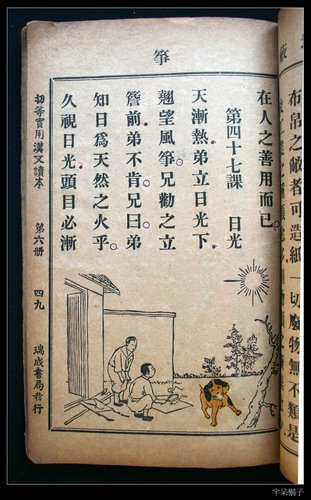 布帛之敝者可造紙一切廢物無不類是
箏
在人之善用而已。
第四十七課 日光
天漸熱。弟立日光下。
翹望風箏。兄勸之立
簷前。弟不肯。兄曰。弟
知日爲天然之火乎。
久視日光。頭目必漸
初等實用漢文讀本 第六册 四九 瑞成書局發行